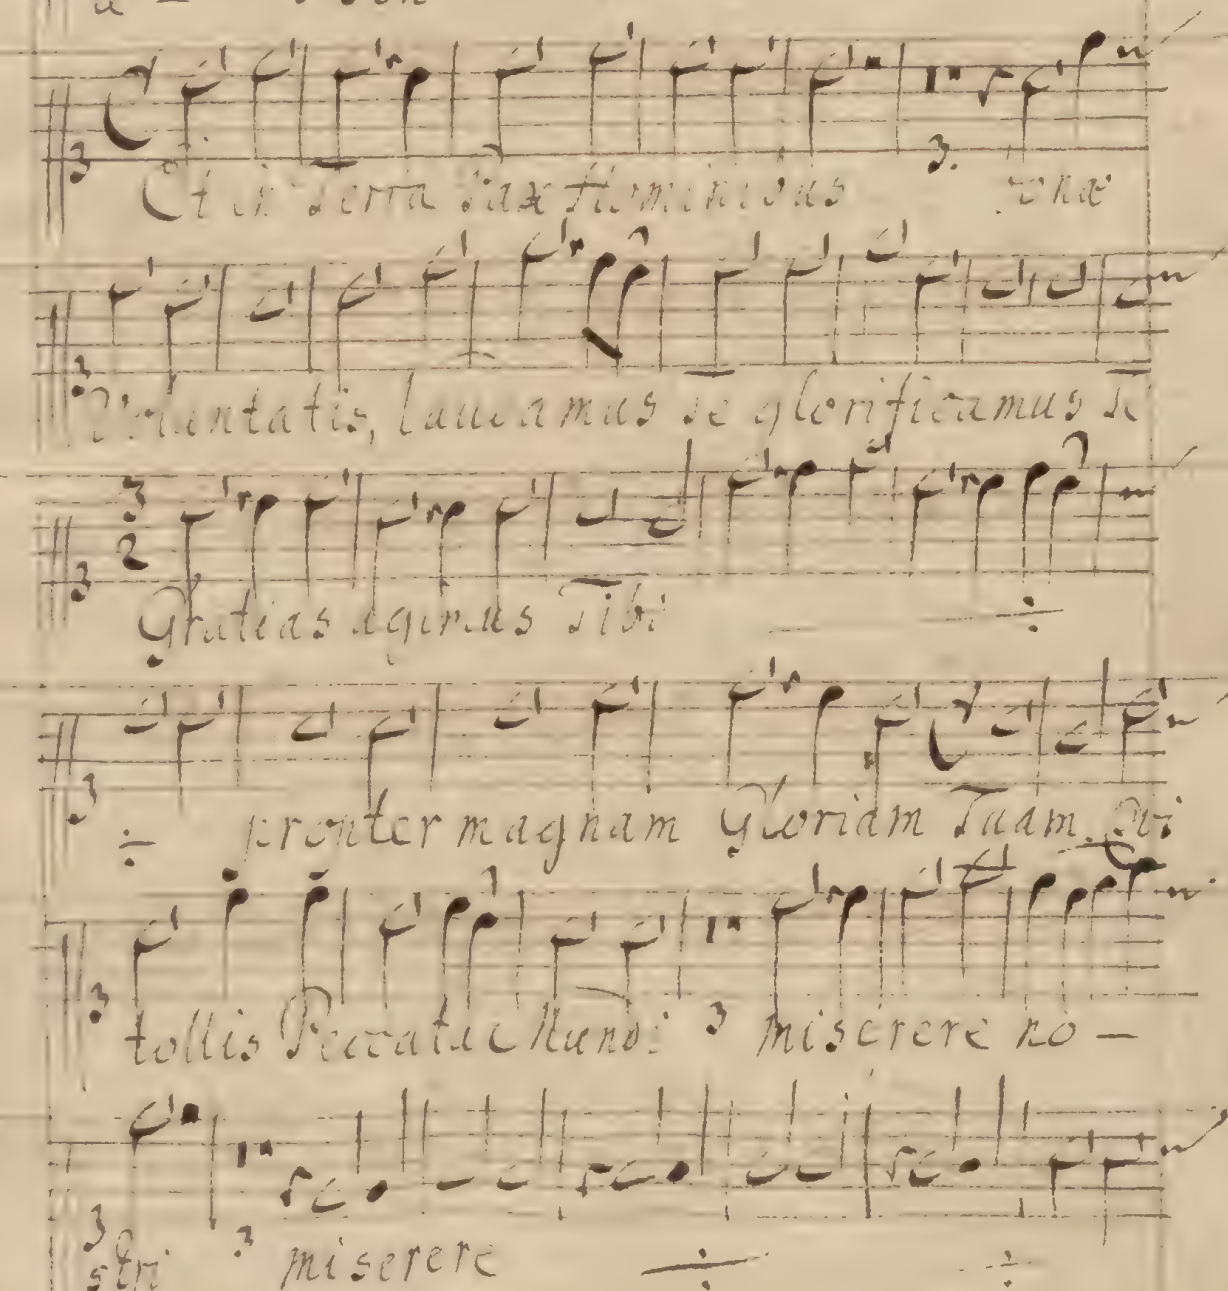 Et in Terra Pax Hominibus bonæ
Voluntatis, Laudamus Te glorificamus Te
Gratias agimus Tibi ÷
÷ propter magnam Gloriam Tuam. Qui
tollis Peccata Mundi miserere no –
stri miserere ÷ ÷